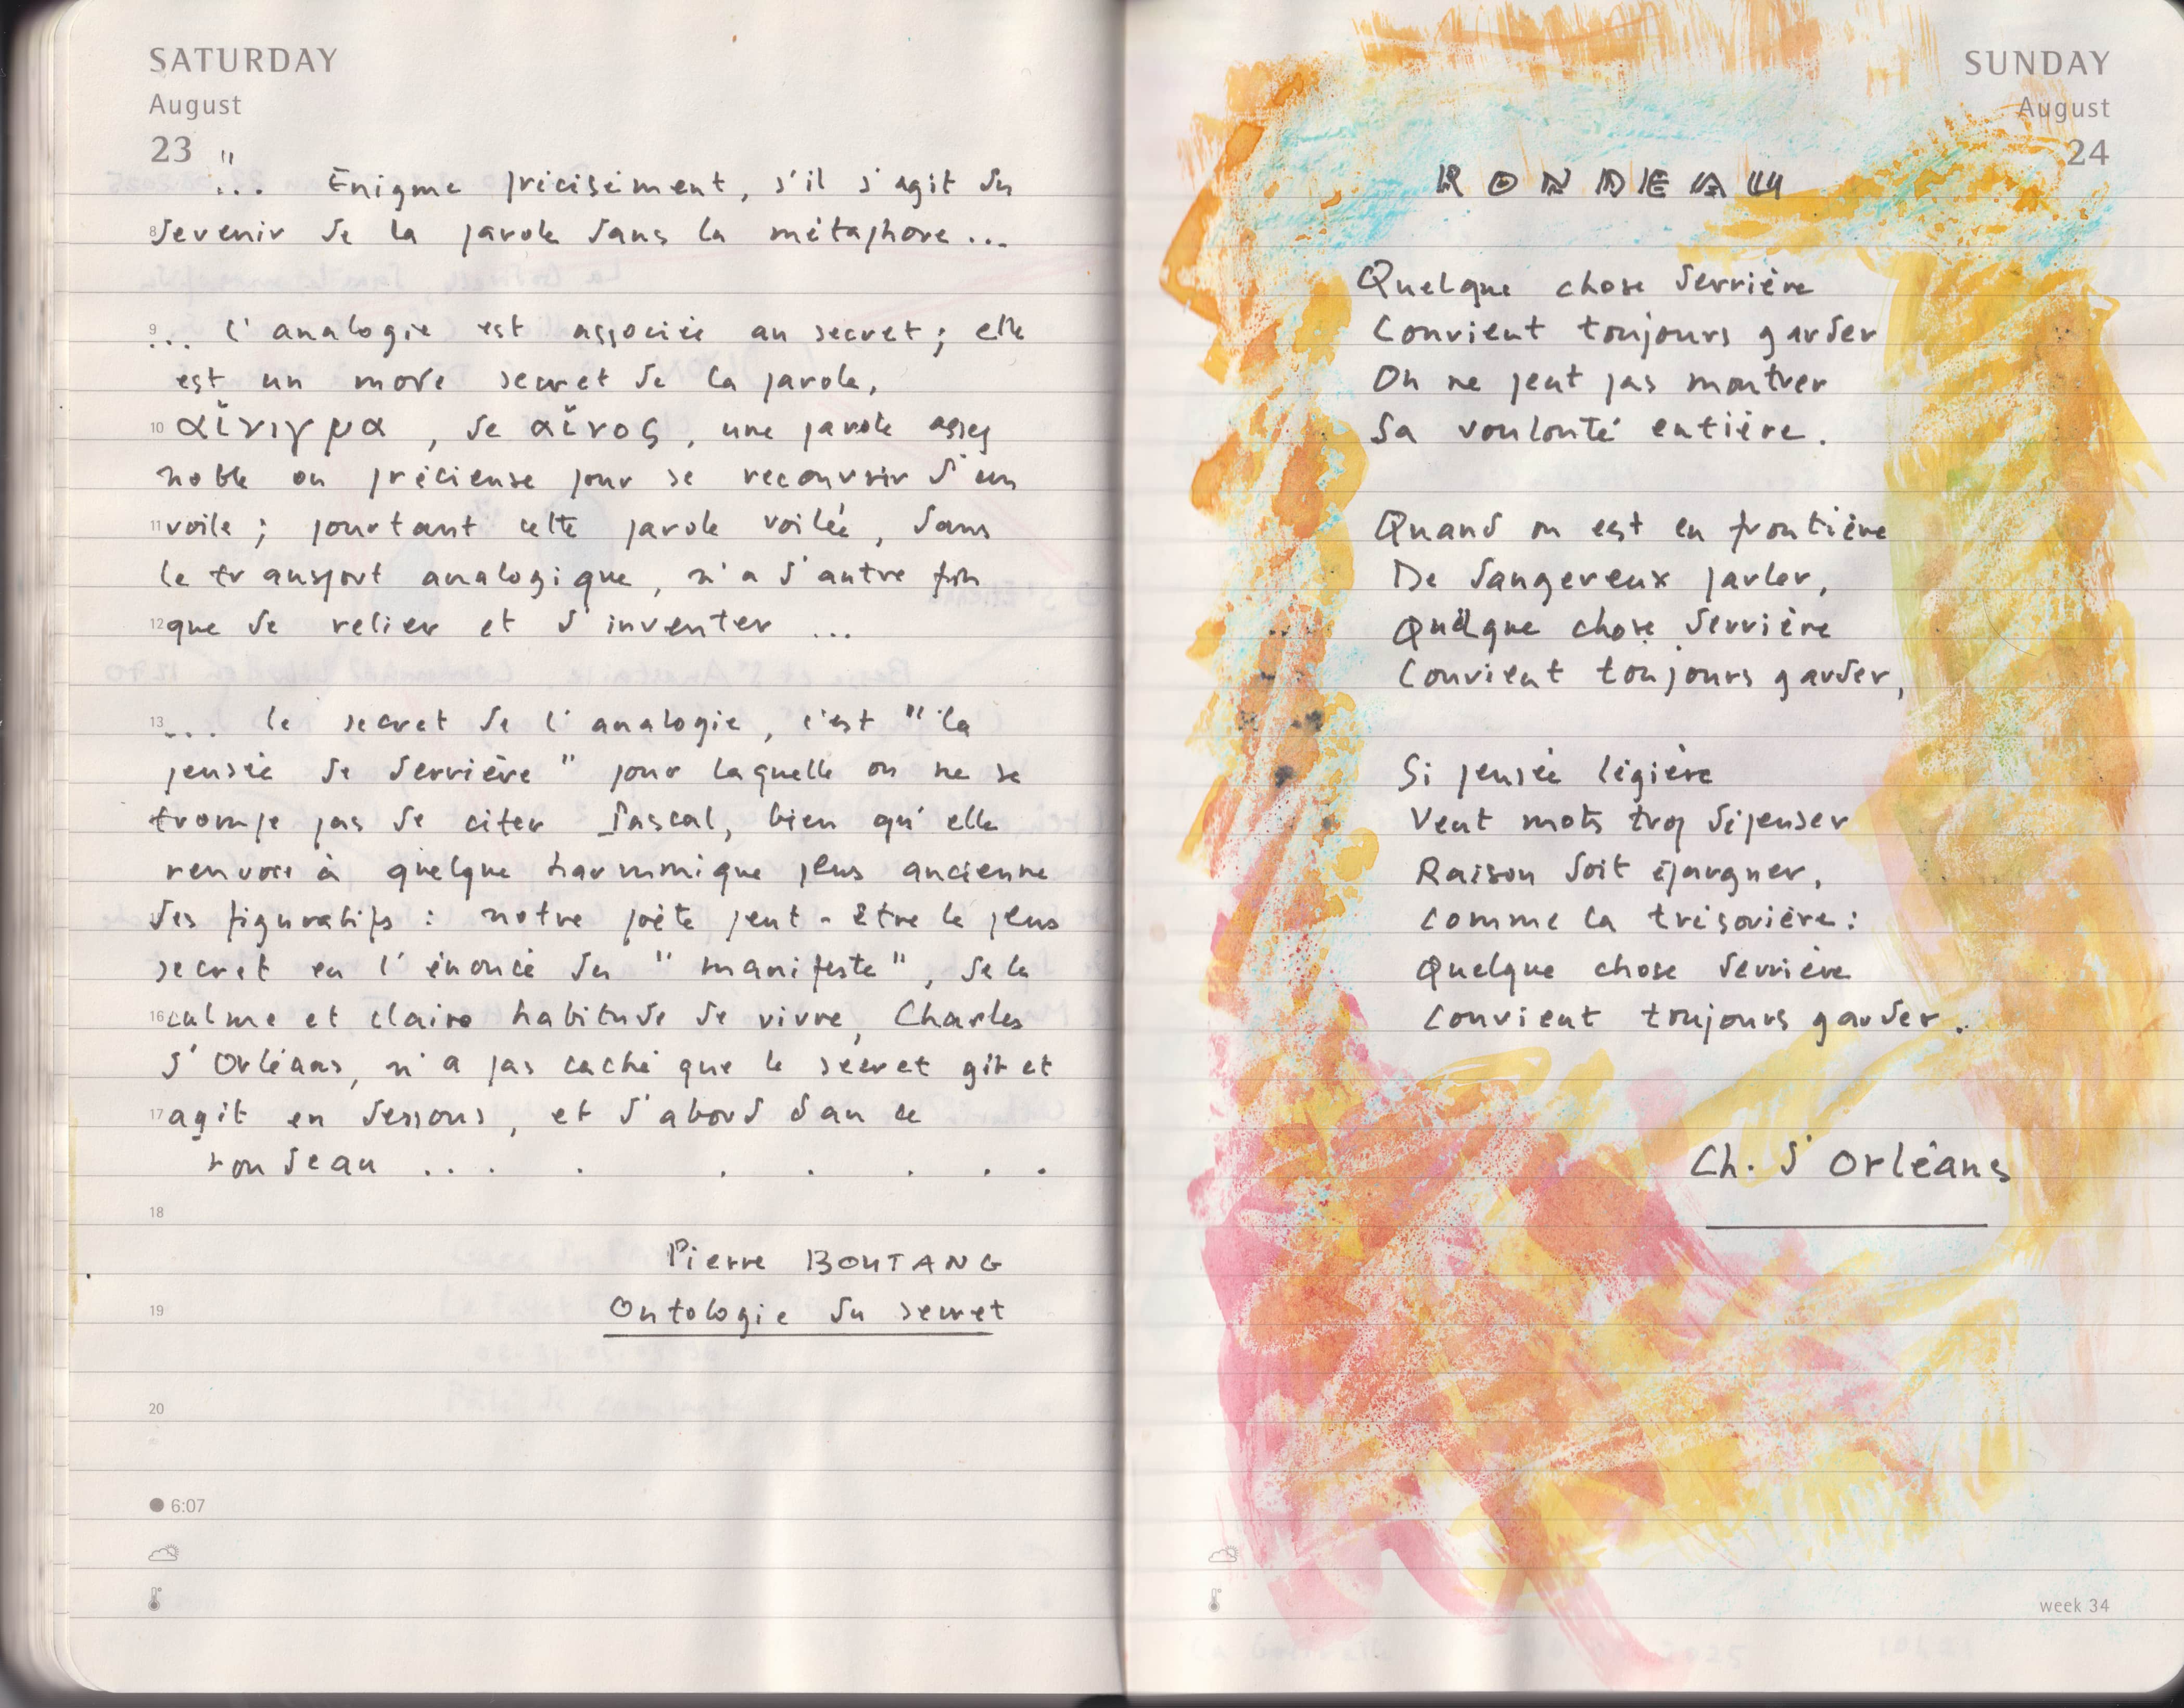 SATURDAY
August
23
"... Énigme précisément, s'il s'agit du
8 devenir de la parole dans la métaphore...
9
... l'analogie est associée au secret ; elle
est un mode secret de la parole,
10 αἴνιγμα, de αἴνος, une parole assez
noble ou précieuse pour se recouvrir d'un
11 voile ; pourtant cette parole voilée, dans
le transport analogique, n'a d'autre fin
12 que de relier et d'inventer ...
13 ... le secret de l'analogie, c'est "la
pensée de derrière" pour laquelle on ne se
trompe pas de citer Pascal, bien qu'elle
renvoie à quelque harmonique plus ancienne
des figuratifs : notre poète peut-être le plus
secret en l'énoncé du "manifeste", de la
16 calme et claire habitude de vivre, Charles
d'Orléans, n'a pas caché que le secret gît et
17 agit en dessous, et d'abord dan ce
rondeau .... . . . . . .
18
Pierre BOUTANG
19
Ontologie du secret
20
6:07
SUNDAY
August
24
RONDEAU
Quelque chose derrière
Convient toujours garder
On ne peut pas montrer
Sa voulonté entière.
Quand on est en frontière
De dangereux parler,
Quelque chose derrière
Convient toujours garder,
Si pensée légière
Veut mots trop dépenser
Raison doit épargner,
Comme la trésorière :
Quelque chose derrière
Convient toujours garder.
Ch. d'Orléans
week 34